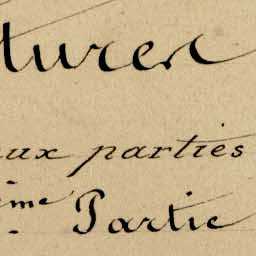 turer
aux parties
ème Partie